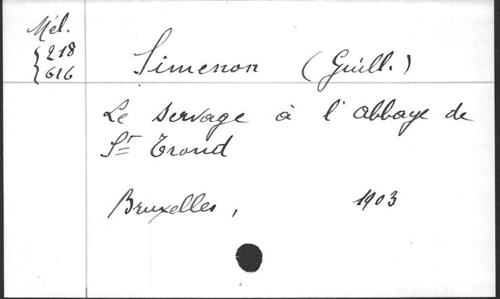 Mél.
{218
{616
Simenon (Guill.)
Le servage à l'abbaye de
St Trond
Bruxelles, 1903